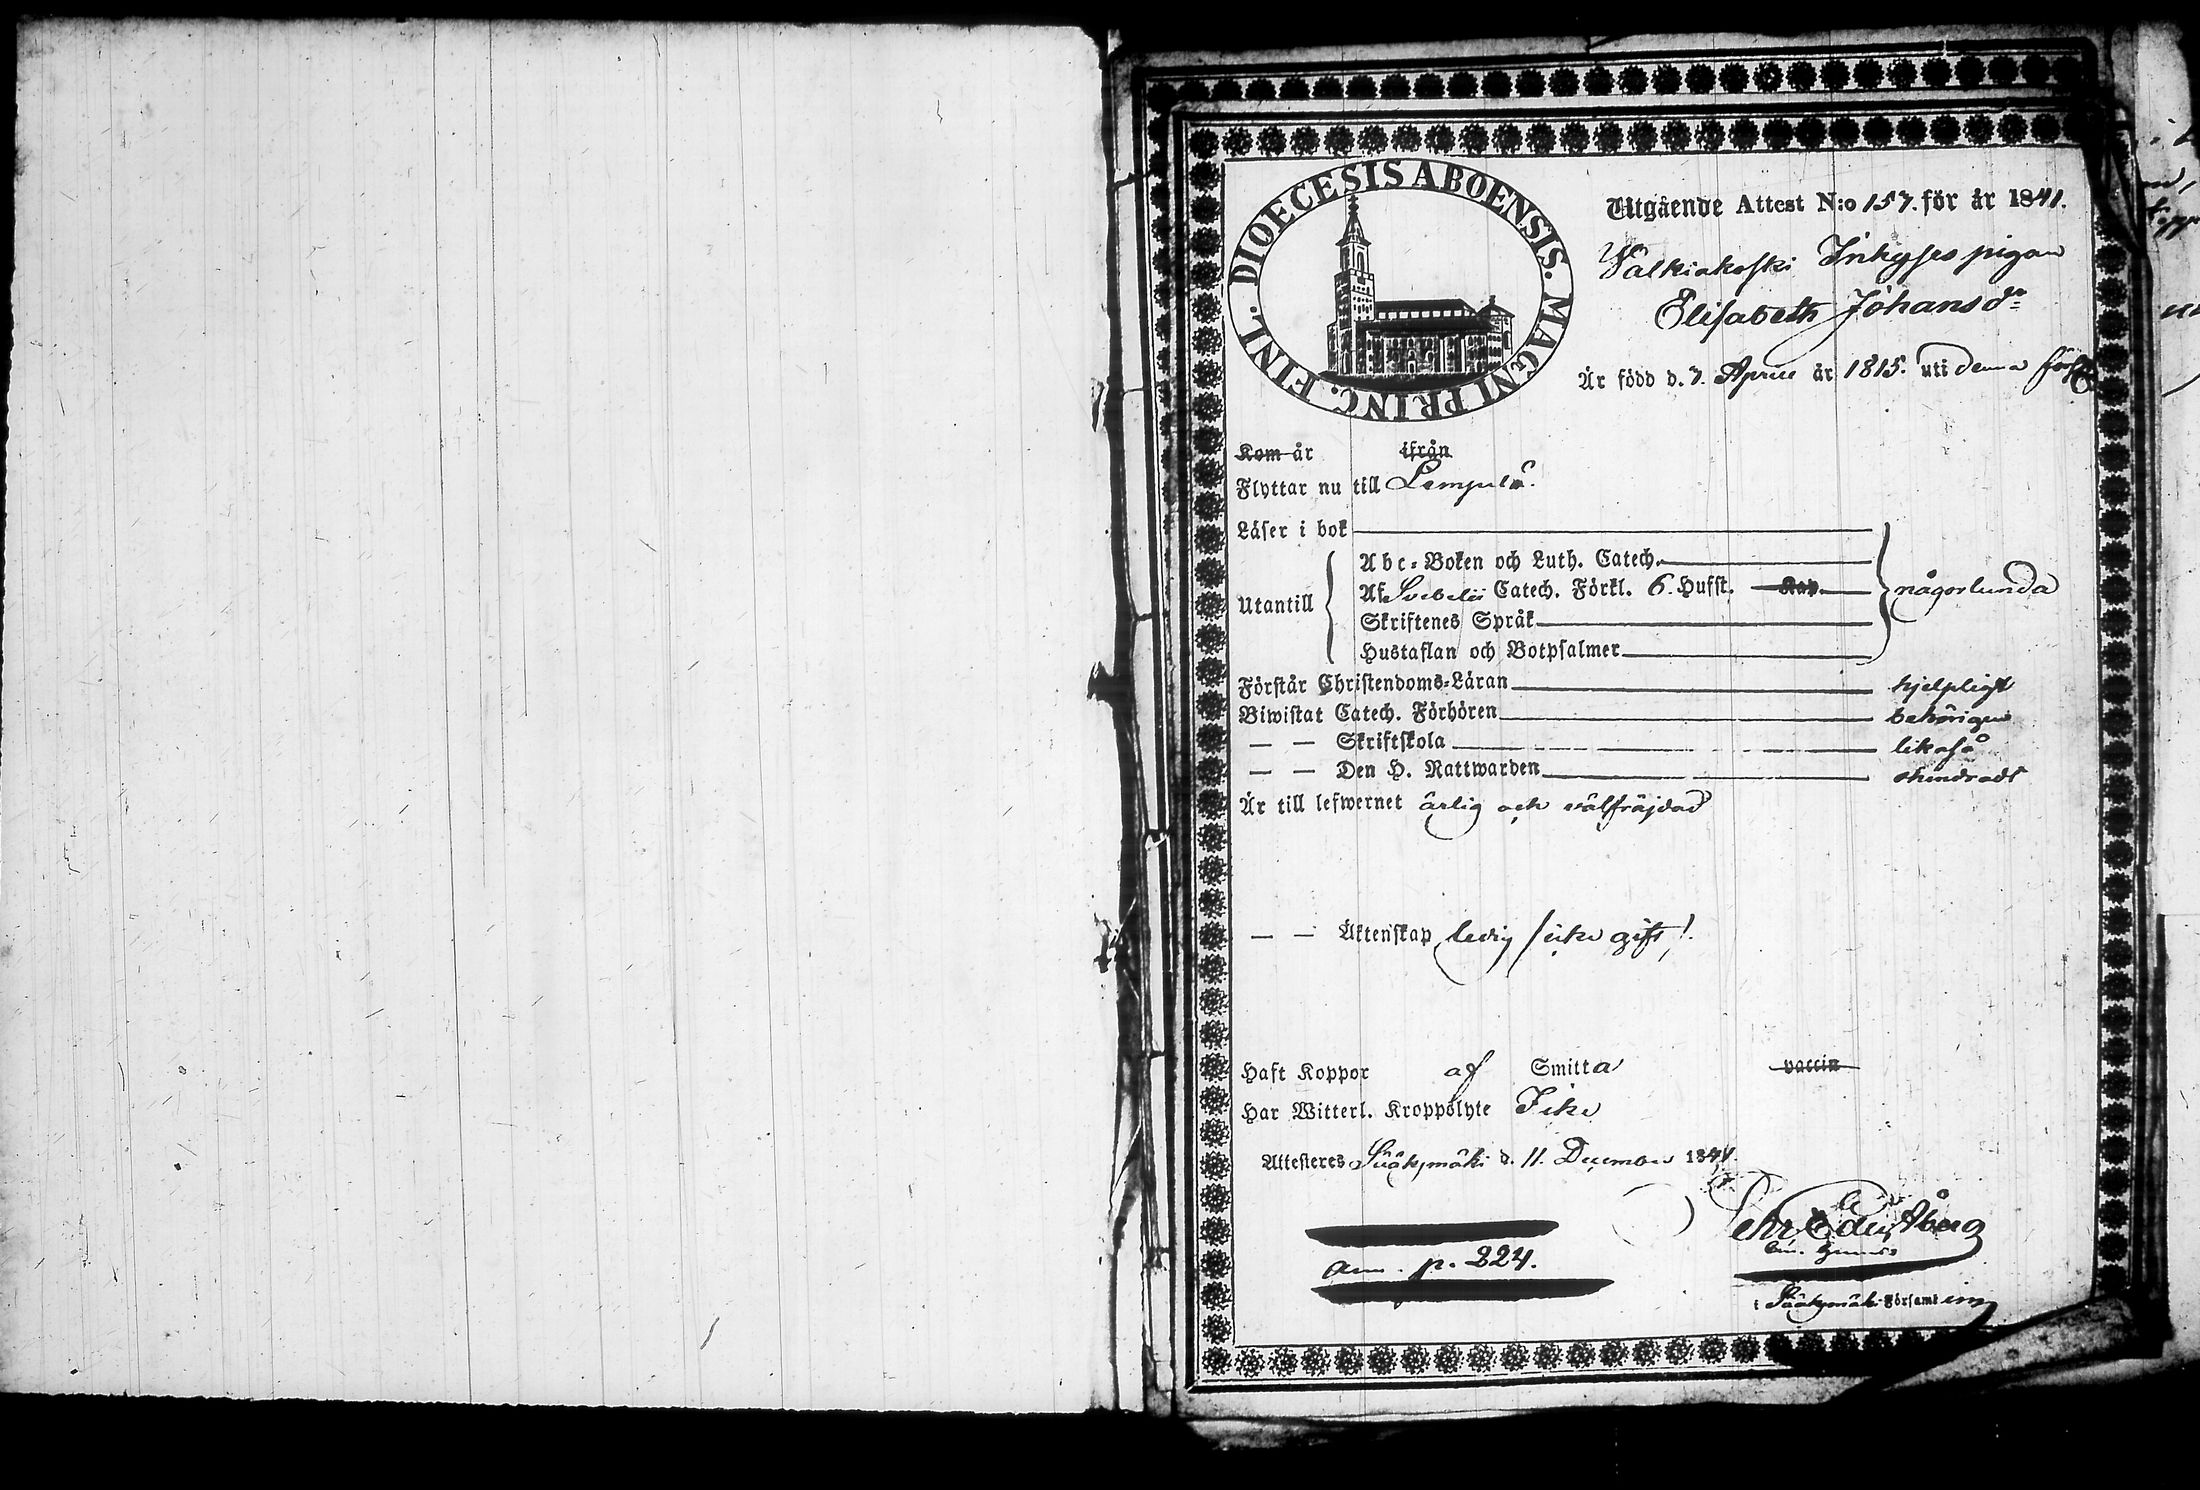 DIOECESIS ABOENSIS. MAGNI PRINC. FINL.
Utgående Attest N:o 157. för år 1841.
Walkiakoski Inhyses pigan
Elisabeth Johansdr
Är född d. 7. April år 1815. uti denna förs
Kom år ifrån
Flyttar nu till Lempälä.
Läser i bok
Utantill
Abc-Boken och Luth. Catech.
Af Svebelii Catech. Förkl. 6. Hufst. Kap.
någorlunda
Skriftenes Språk
Hustaflan och Botpsalmer
Förstår Christendoms-Läran hjelpligt
Biwistat Catech. Förhören behörigen
— — Skriftskola likaså
— — Den H. Nattwarden
Är till lefwernet ärlig och välfräjdad
— — Äktenskap ledig / icke gift /.
Haft Koppor af Smitta vaccin
Har Witterl. Kroppslyte Icke
Attesteras Sääksmäki d. 11. December 1841.
Åberg
p. 224.
i Sääksmäki Församling